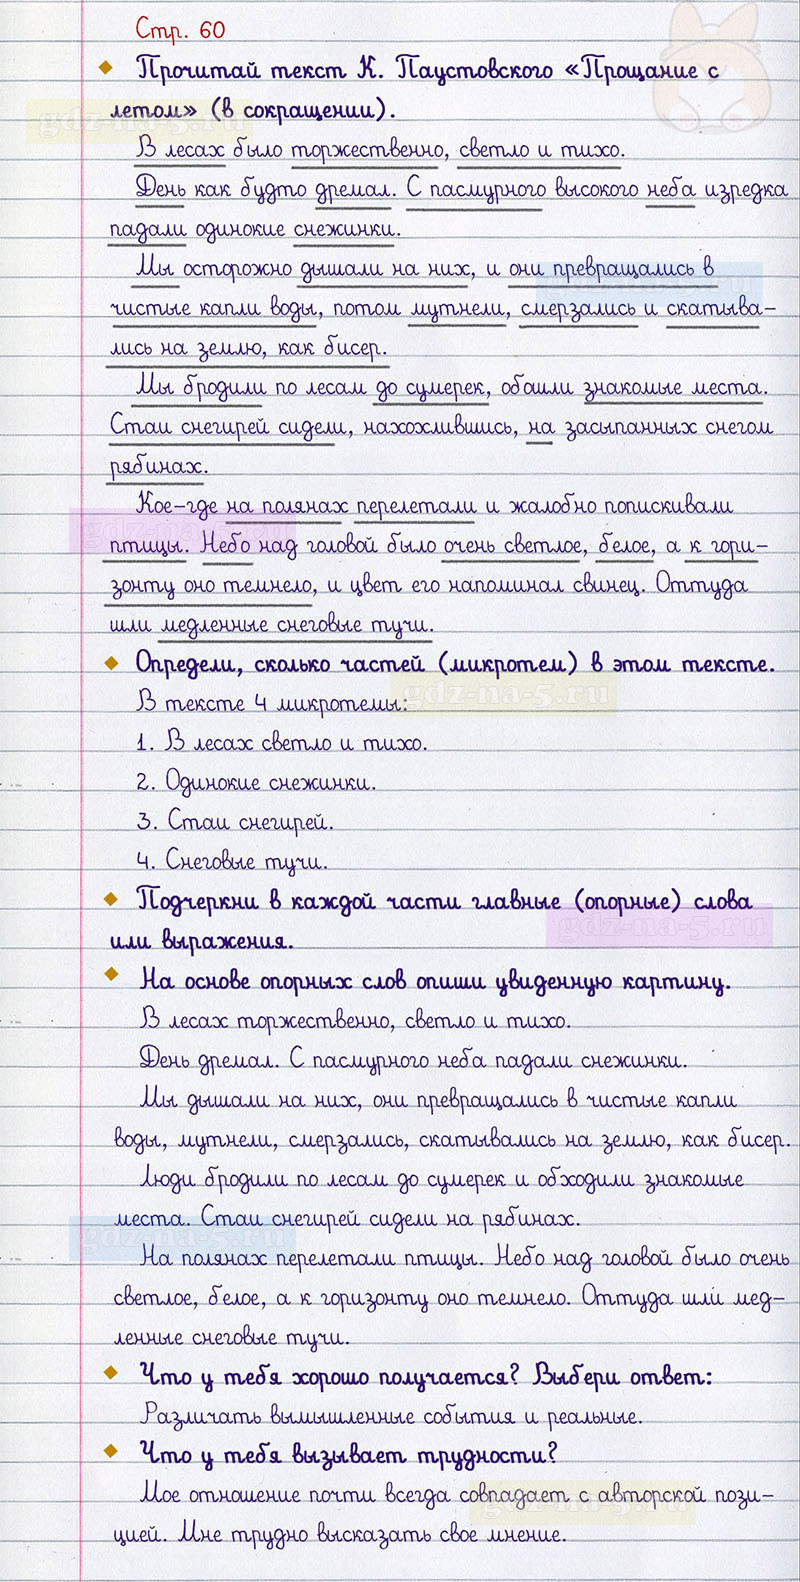 Стр. 60
Прочитай текст К. Паустовского «Прощание с
летом» (в сокращении).
gdz-na-5.ru
В лесах было торжественно, светло и тихо.
День как будто дремал. С пасмурного высокого неба изредка
падали одинокие снежинки.
Мы осторожно дышали на них, и они превращались в
gdz-na-5.ru
чистые капли воды, потом мутнели, смерзались и скатыва-
лись на землю, как бисер.
Мы бродили по лесам до сумерек, обошли знакомые места.
Стаи снегирей сидели, нахохлившись, на засыпанных снегом
рябинах.
Кое-где на полянах перелетали и жалобно попискивали
gdz-na-5.ru
птицы. Небо над головой было очень светлое, белое, а к гори-
зонту оно темнело, и цвет его напоминал свинец. Оттуда
шли медленные снеговые тучи.
Определи, сколько частей (микротем) в этом тексте.
gdz-na-5.ru
В тексте 4 микротемы:
1. В лесах светло и тихо.
2. Одинокие снежинки.
3. Стаи снегирей.
4. Снеговые тучи.
Подчеркни в каждой части главные (опорные) слова
gdz-na-5.ru
или выражения.
На основе опорных слов опиши увиденную картину.
В лесах торжественно, светло и тихо.
День дремал. С пасмурного неба падали снежинки.
Мы дышали на них, они превращались в чистые капли
воды, мутнели, смерзались, скатывались на землю, как бисер.
Люди бродили по лесам до сумерек и обходили знакомые
места. Стаи снегирей сидели на рябинах.
gdz-na-5.ru
На полянах перелетали птицы. Небо над головой было очень
светлое, белое, а к горизонту оно темнело. Оттуда шли мед-
ленные снеговые тучи.
Что у тебя хорошо получается? Выбери ответ:
Различать вымышленные события и реальные.
Что у тебя вызывает трудности?
Мое отношение почти всегда совпадает с авторской пози-
gdz-na-5.ru
цией. Мне трудно высказать свое мнение.